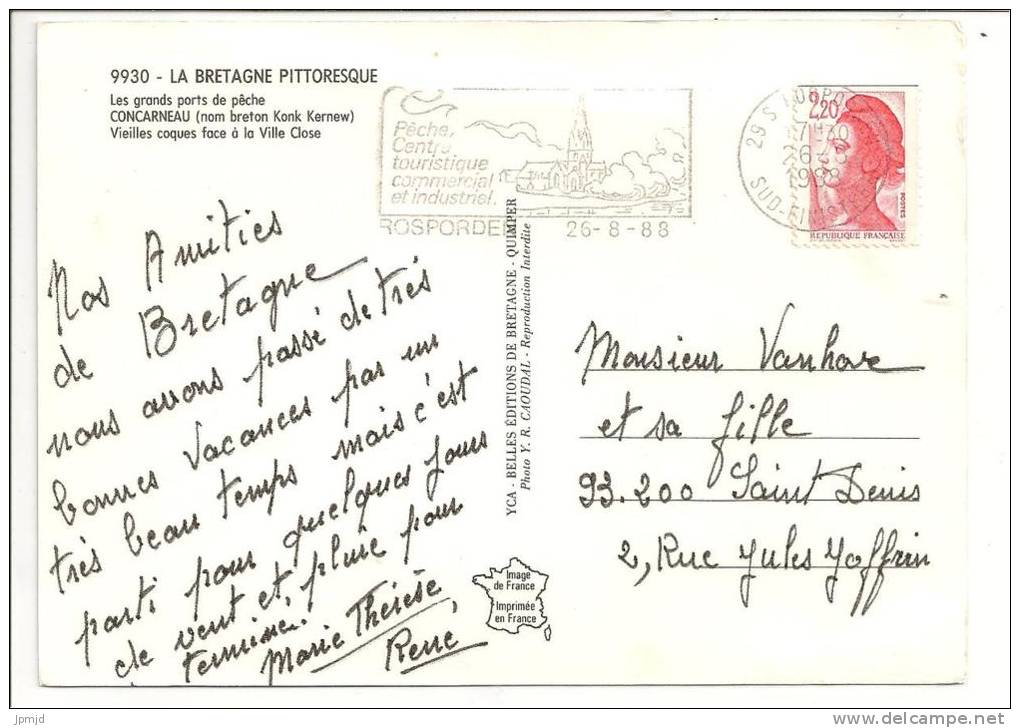 9930 - LA BRETAGNE PITTORESQUE
Les grands ports de pêche
CONCARNEAU (nom breton Konk Kernew)
Vieilles coques face à la Ville Close
Pêche,
Centre
touristique
commercial
et industriel.
ROSPORDEN 26-8-88
29 S
26-8
1988
SUD-FINISTERE
2,20
POSTES
REPUBLIQUE FRANÇAISE
Nos Amitiés
de Bretagne
nous avons passé de très
bonnes vacances par un
très beau temps mais c'est
parti pour quelques jours
de vent et pluie pour
terminé.
Marie Thérèse
René
YCA - BELLES ÉDITIONS DE BRETAGNE - QUIMPER
Photo Y. R. CAOUDAL - Reproduction Interdite
Image
de France
Imprimée
en France
Monsieur Vanhove
et sa fille
93.200 Saint Denis
2, Rue Jules Joffrin
jpmjd
www.delcampe.net